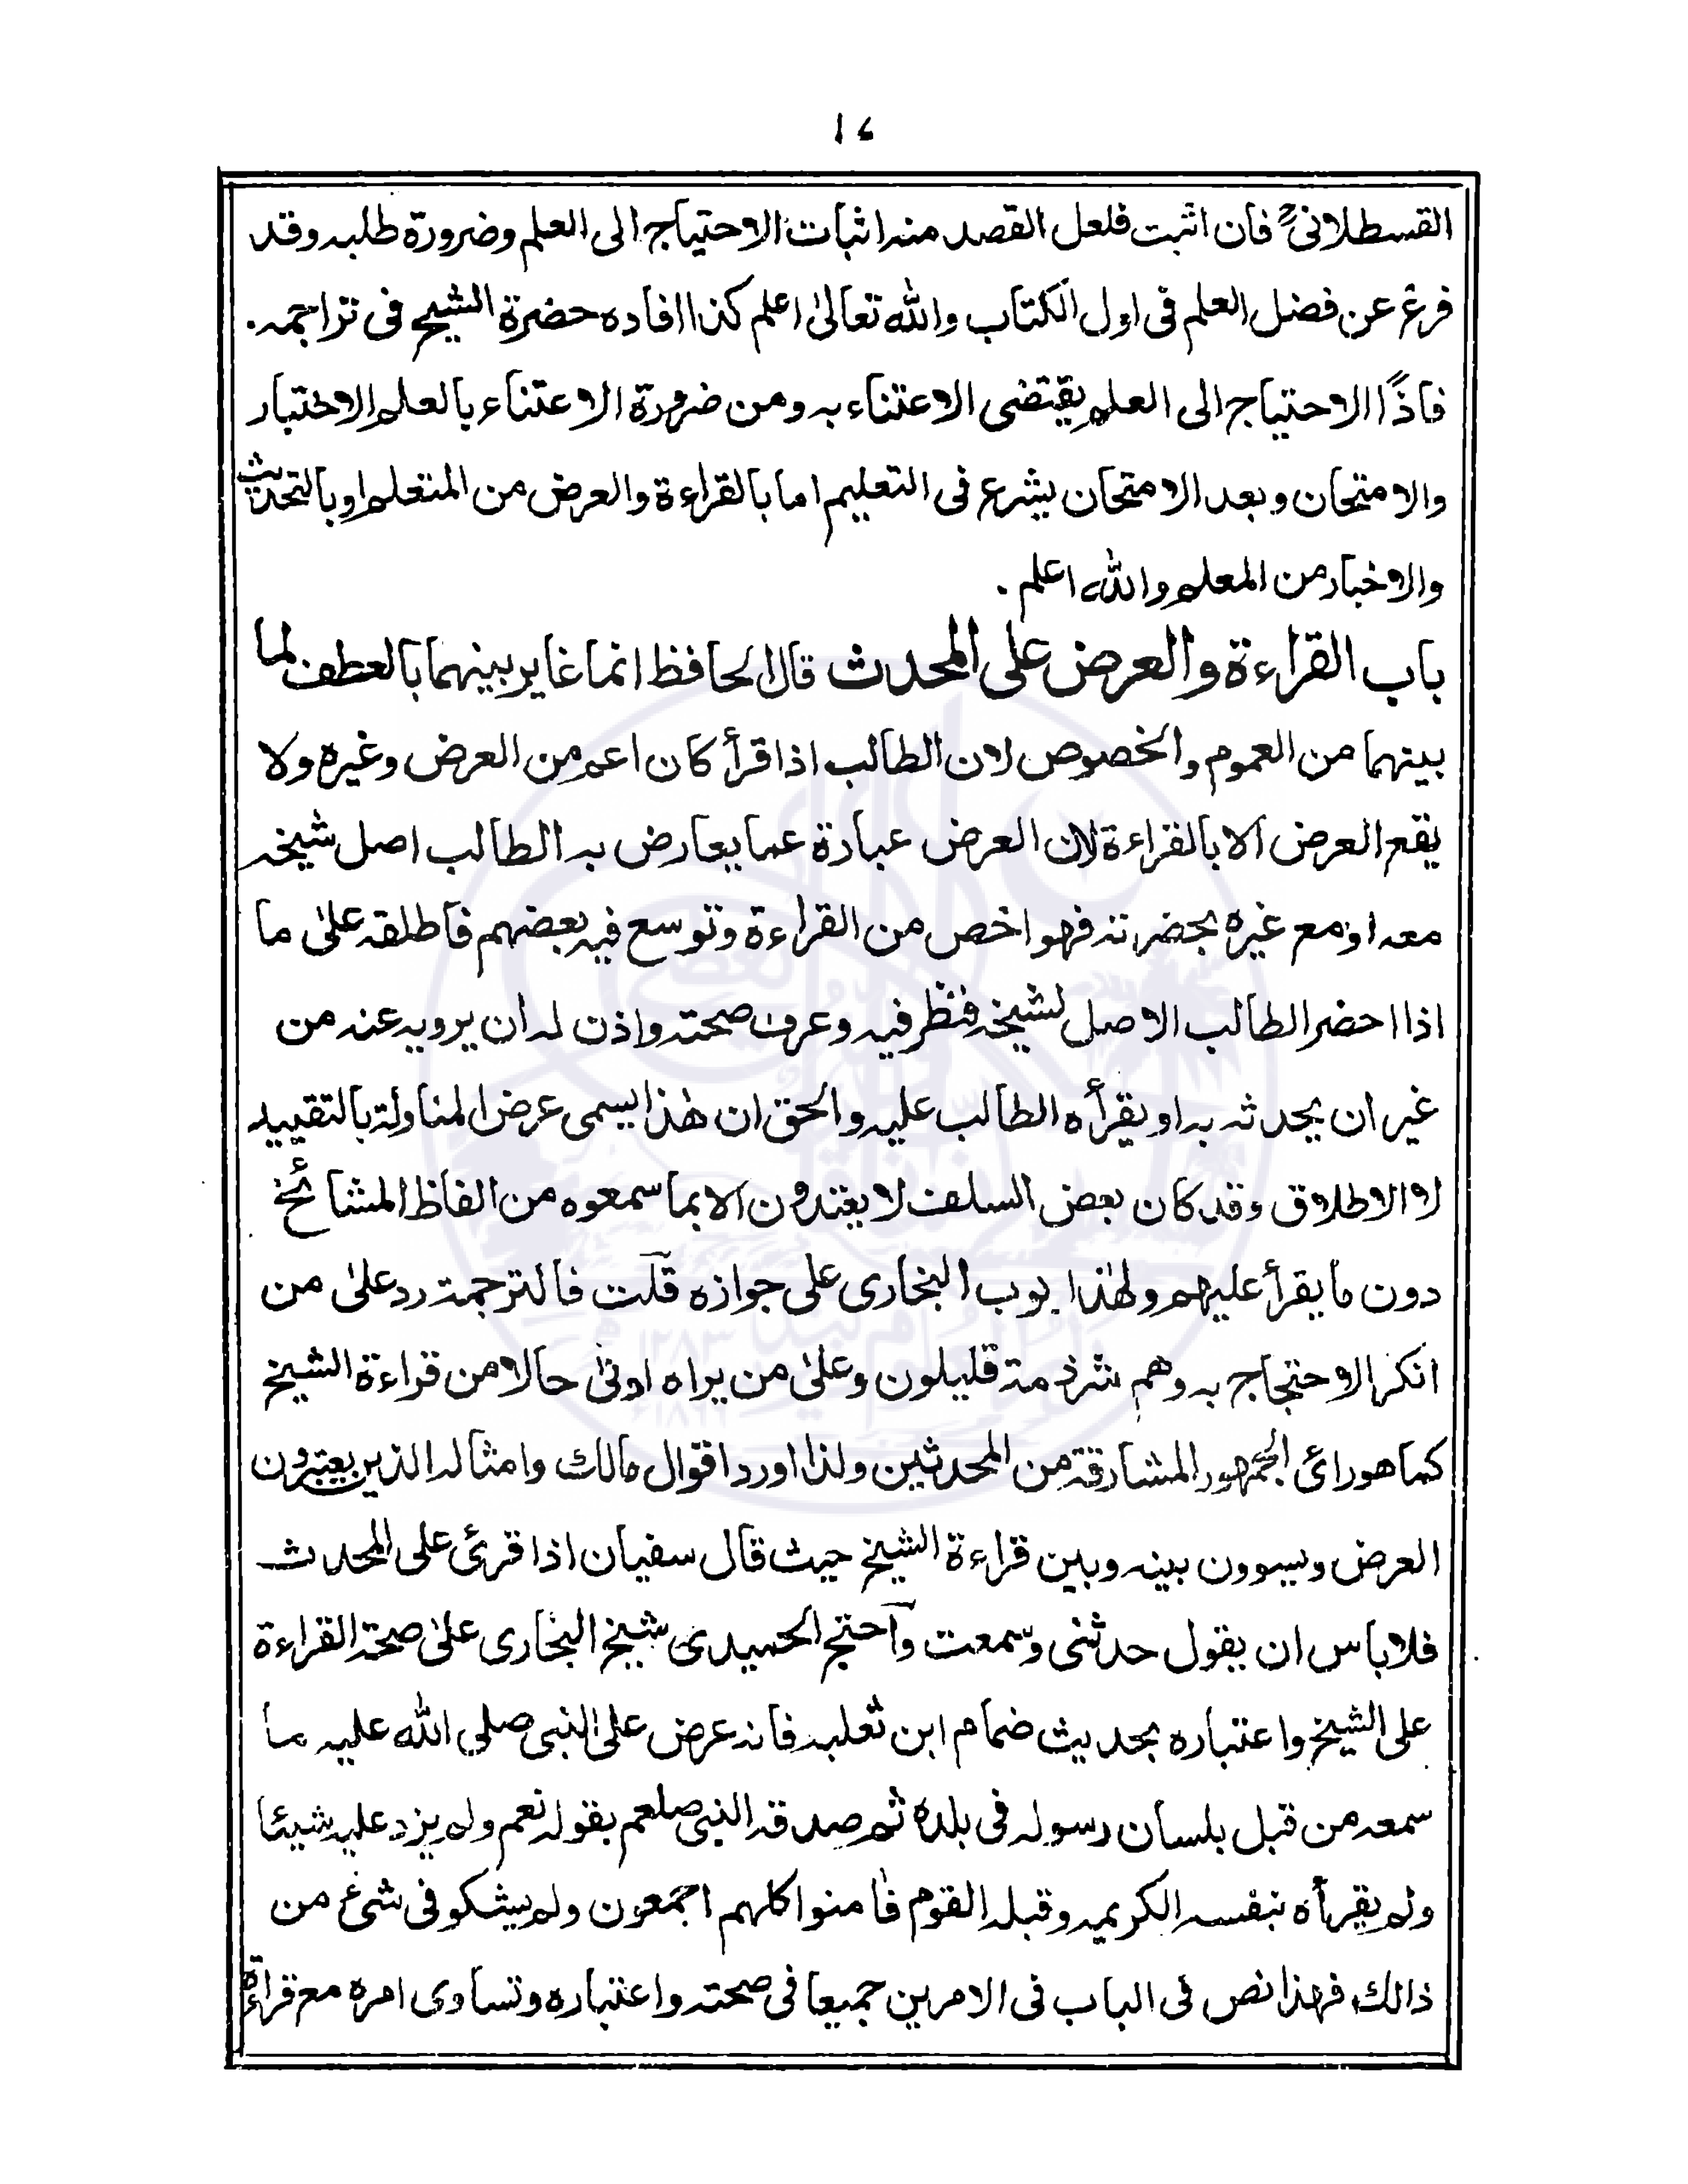 ۱۷
القسطلانیؒ فان اثبت فلعل القصد منہ اثبات الاحتیاج الی العلم وضرورة طلبہ وقد
فرغ عن فضل العلم فی اول الکتاب واللہ تعالیٰ اعلم کذا افادہ حضرة الشیخ فی تراجمہ۔
فاذًا الاحتیاج الی العلم یقتضی الاعتناء بہ ومن ضرورة الاعتناء بالعلم الاختبار
والامتحان وبعد الامتحان یشرع فی التعلیم اما بالقراءة والعرض من المتعلم او بالتحدیث
والاخبار من المعلم واللہ اعلم۔
باب القراءة والعرض علی المحدث قال الحافظ انما غایر بینهما بالعطف لما
بینهما من العموم والخصوص لان الطالب اذا قرأ کان اعم من العرض وغیرہ ولا
یقع العرض الا بالقراءة لان العرض عبارة عما یعارض بہ الطالب اصل شیخہ
معہ او مع غیرہ بحضرتہ فهو اخص من القراءة وتوسع فیہ بعضهم فاطلقہ علیٰ ما
اذا احضر الطالب الاصل لشیخہ فنظر فیہ وعرف صحتہ واذن لہ ان یرویہ عنہ من
غیر ان یحدثہ بہ او یقرأہ الطالب علیہ والحق ان هٰذا یسمی عرض المناولة بالتقیید
لا الاطلاق وقد کان بعض السلف لا یعتدون الا بما سمعوہ من الفاظ المشائخ
دون ما یقرأ علیهم ولهٰذا بوب البخاری علی جوازہ قلت فالترجمة رد علیٰ من
انکر الاحتجاج بہ وهم شرذمة قلیلون وعلیٰ من یراہ ادنیٰ حالا من قراءة الشیخ
کما هو رائ الجمهور المشارقة من المحدثین ولذا اورد اقوال مالك وامثالہ الذین یعتبرون
العرض ویسوون بینہ وبین قراءة الشیخ حیث قال سفیان اذا قرئ علی المحدث
فلا باس ان یقول حدثنی وسمعت وآحتج الحمیدی شیخ البخاری علیٰ صحة القراءة
علی الشیخ واعتبارہ بحدیث ضمام ابن ثعلبہ فانہ عرض علیٰ النبی صلی اللہ علیہ ما
سمعہ من قبل بلسان رسولہ فی بلدہ ثم صدقہ النبی صلعم بقولہ نعم ولم یزد علیہ شیئا
ولم یقرأہ بنفسہ الکریم وقبلہ القوم فاٰمنوا کلهم اجمعون ولم یشکو فی شئ من
ذالك فهذا نص فی الباب فی الامرین جمیعا فی صحتہ واعتبارہ وتساوی امرہ مع قراءة